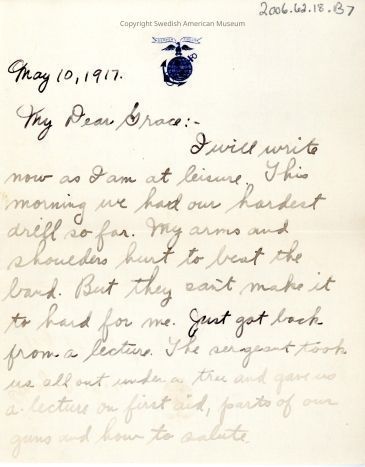 Copyright Swedish American Museum
2006.62.18.B7
May 10, 1917.
My Dear Grace:-
I will write
now as I am at leisure. This
morning we had our hardest
drill so far. My arms and
shoulders hurt to beat the
band. But they can't make it
to hard for me. Just got back
from a lecture. The sergeant took
us all out under a tree and gave us
a lecture on first aid, parts of our
guns and how to salute.